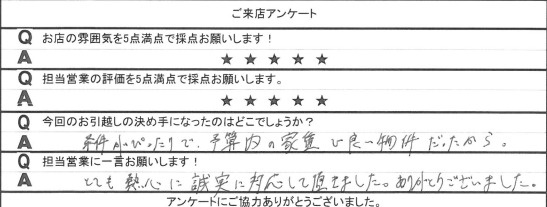 ご来店アンケート
Q お店の雰囲気を5点満点で採点お願いします！
A ★ ★ ★ ★ ★
Q 担当営業の評価を5点満点で採点お願いします。
A ★ ★ ★ ★ ★
Q 今回のお引越しの決め手になったのはどこでしょうか？
A 条件がぴったりで、予算内の家賃で良い物件だったから。
Q 担当営業に一言お願いします！
A とても熱心に誠実に対応して頂きました。ありがとうございました。
アンケートにご協力ありがとうございました。